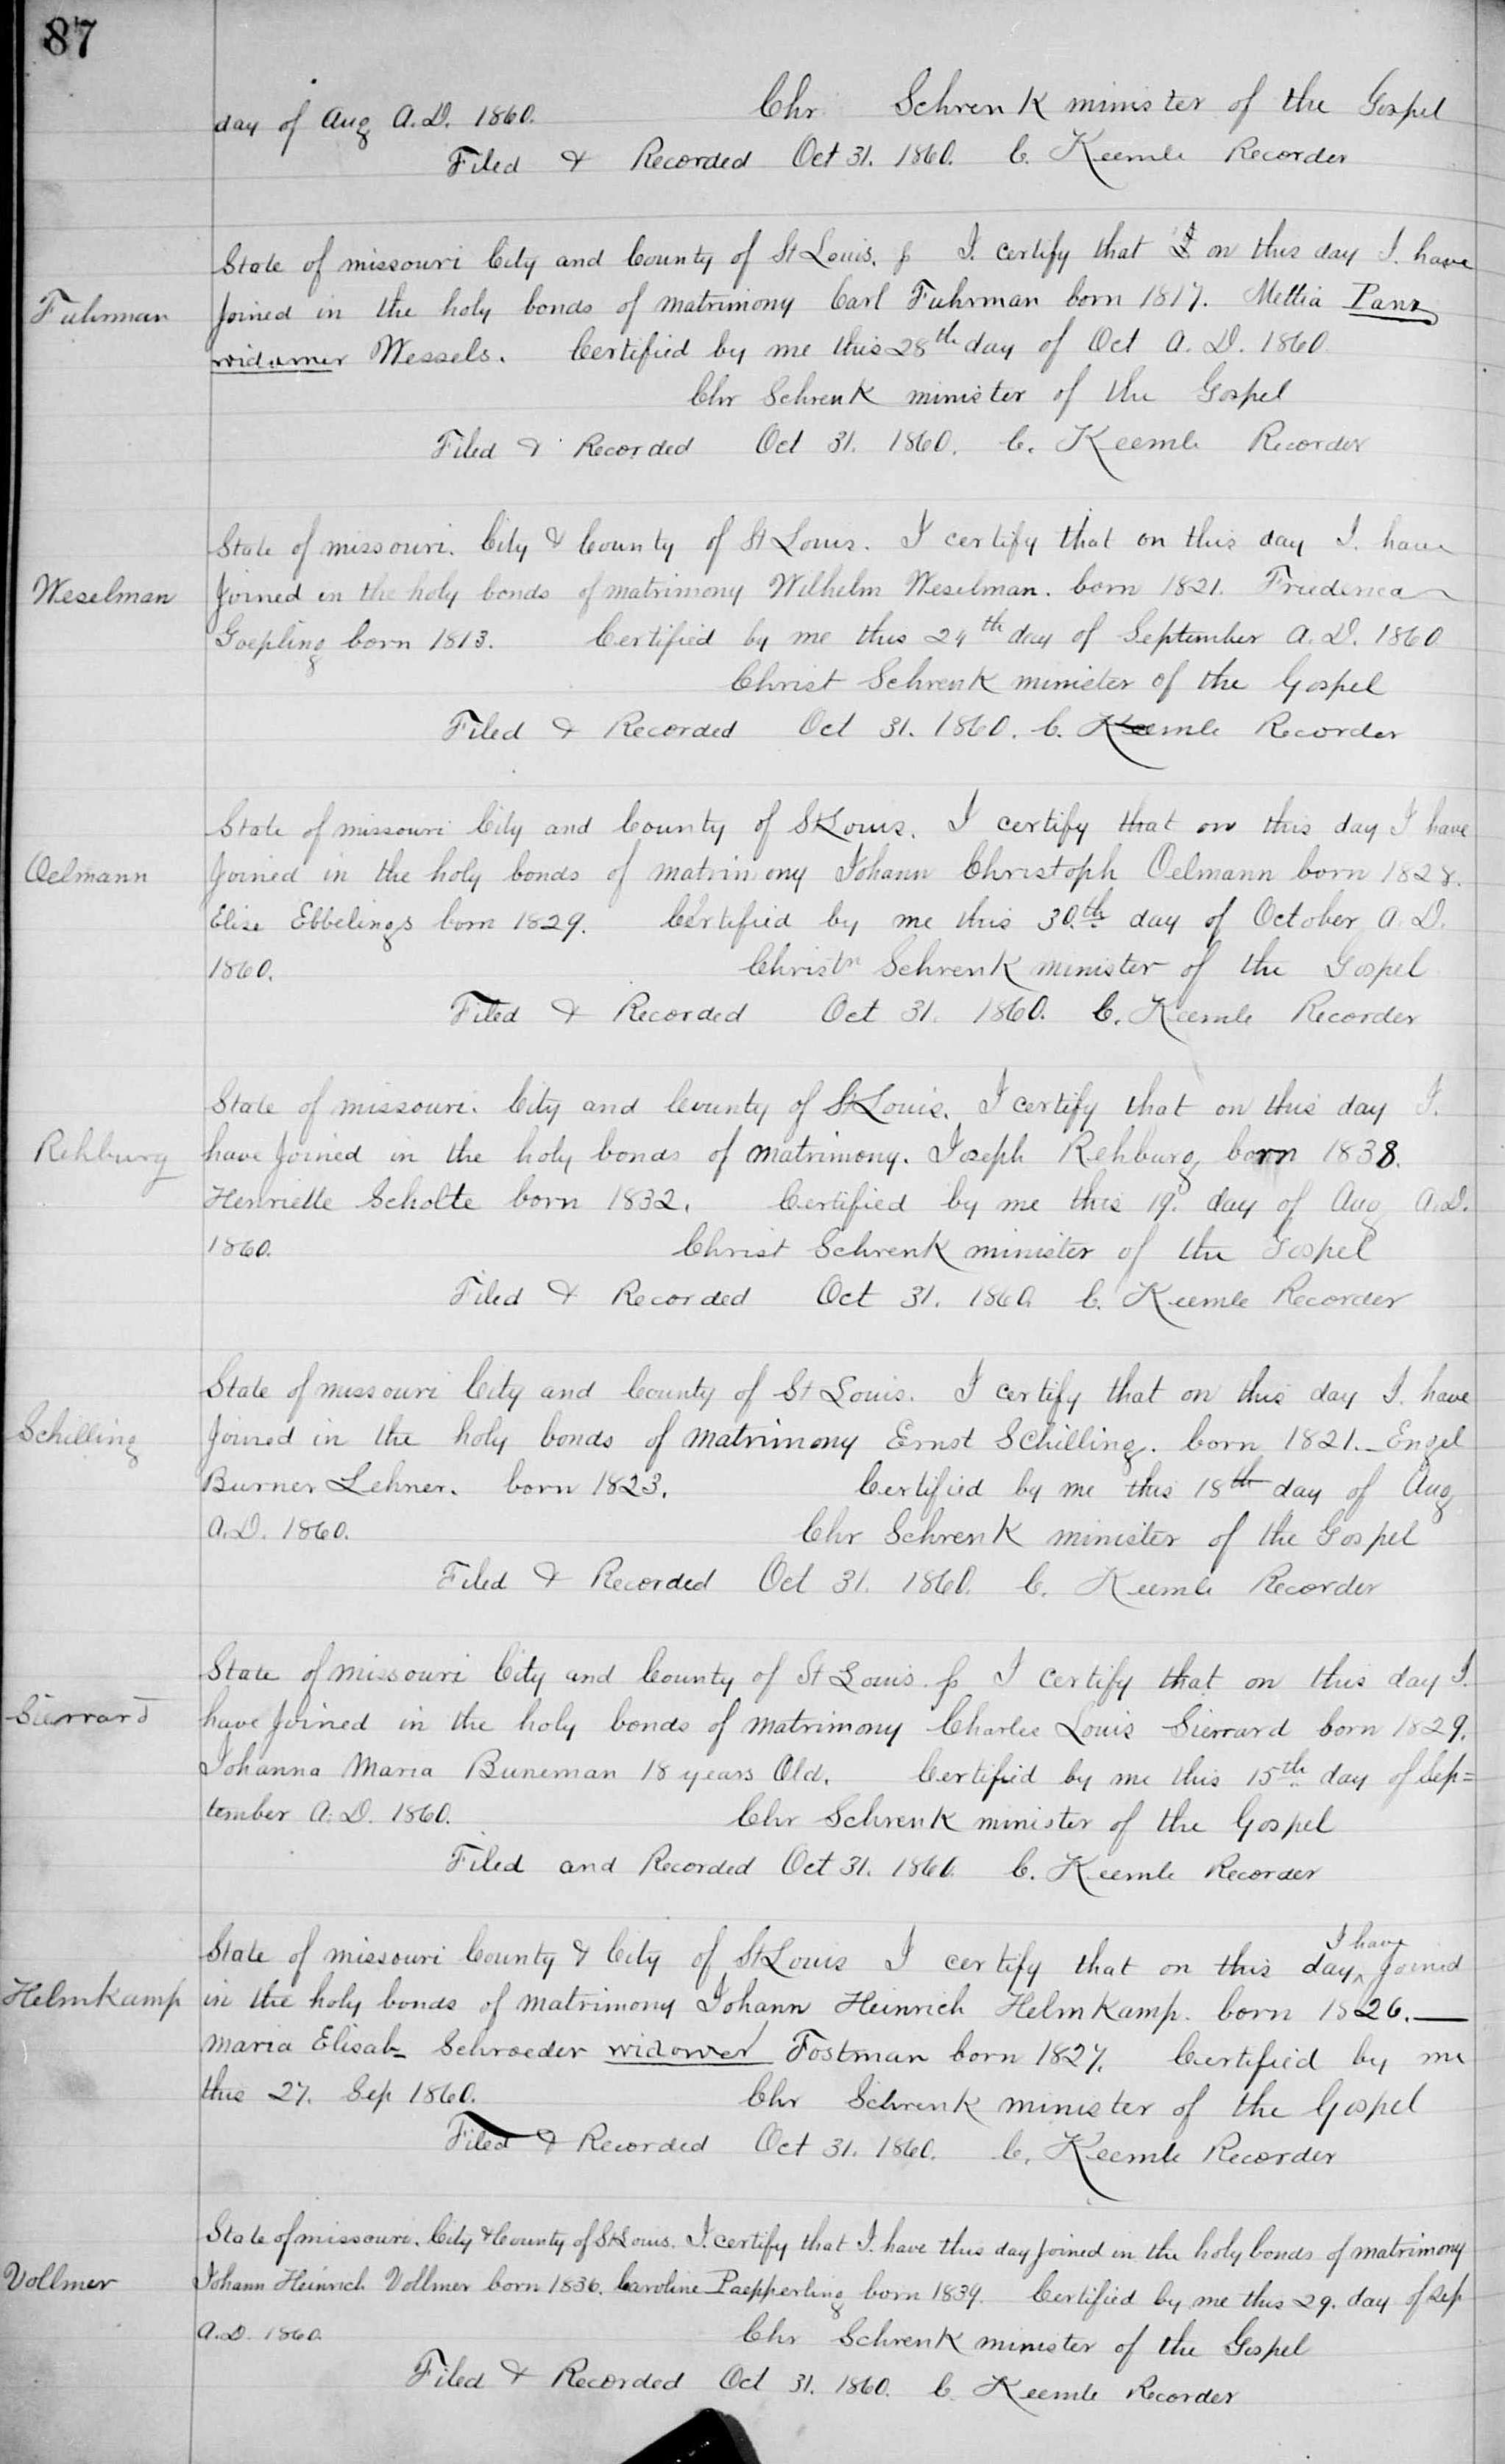 87
day of Aug A.D. 1860. Chr Schrenk minister of the Gospel
Filed & Recorded Oct 31. 1860. C. Keemle Recorder
State of missouri City and County of St Louis. I. certify that on this day I. have
Fuhrman
Joined in the holy bonds of matrimony Carl Fuhrman born 1817. Mettia Panz
widower Wessels. Certified by me this 28th day of Oct A.D. 1860
Chr Schrenk minister of the Gospel
Filed & Recorded Oct 31. 1860. C. Keemle Recorder
State of missouri. City & County of St Louis. I certify that on this day I. have
Weselman
Joined in the holy bonds of matrimony Wilhelm Weselman. born 1821. Friederica
Goepling born 1813. Certified by me this 24th day of September A.D. 1860
Christ Schrenk minister of the Gospel
Filed & Recorded Oct 31. 1860. C. Keemle Recorder
State of missouri City and County of St Louis. I certify that on this day I have
Oelmann
Joined in the holy bonds of matrimony Johann Christoph Oelmann born 1828.
Elise Ebbelings born 1829. Certified by me this 30.th day of October A.D.
1860. Christn Schrenk minister of the Gospel
Filed & Recorded Oct 31. 1860. C. Keemle Recorder
State of missouri. City and County of St Louis. I certify that on this day I.
Rehburg
have Joined in the holy bonds of matrimony. Joseph Rehburg born 1838.
Henriette Scholte born 1832. Certified by me this 19. day of Aug A.D.
1860. Christ Schrenk minister of the Gospel
Filed & Recorded Oct 31. 1860. C. Keemle Recorder
State of missouri City and County of St Louis. I certify that on this day I. have
Schilling
Joined in the holy bonds of matrimony Ernst Schilling. born 1821. _ Engel
Burner Lehner. born 1823. Certified by me this 18th day of Aug
A.D. 1860. Chr Schrenk minister of the Gospel
Filed & Recorded Oct 31. 1860. C. Keemle Recorder
State of missouri City and County of St Louis. I certify that on this day I.
Sierrard
have Joined in the holy bonds of matrimony Charles Louis Sierrard born 1829.
Johanna Maria Buneman 18 years Old. Certified by me this 15th day of Sep=
tember A.D. 1860. Chr Schrenk minister of the Gospel
Filed and Recorded Oct 31. 1860. C. Keemle Recorder
State of missouri County & City of St Louis I certify that on this day I have Joined
Helmkamp
in the holy bonds of matrimony Johann Heinrich Helmkamp. born 1826. —
Maria Elisab_ Schroeder widower Fostman born 1827. Certified by me
this 27. Sep 1860. Chr Schrenk minister of the Gospel
Filed & Recorded Oct 31. 1860. C. Keemle Recorder
State of missouri. City & County of St Louis. I. certify that I. have this day Joined in the holy bonds of matrimony
Vollmer
Johann Heinrich Vollmer born 1836. Caroline Paepperling born 1839. Certified by me this 29. day of Sep
A.D. 1860. Chr Schrenk minister of the Gospel
Filed & Recorded Oct 31. 1860. C. Keemle Recorder